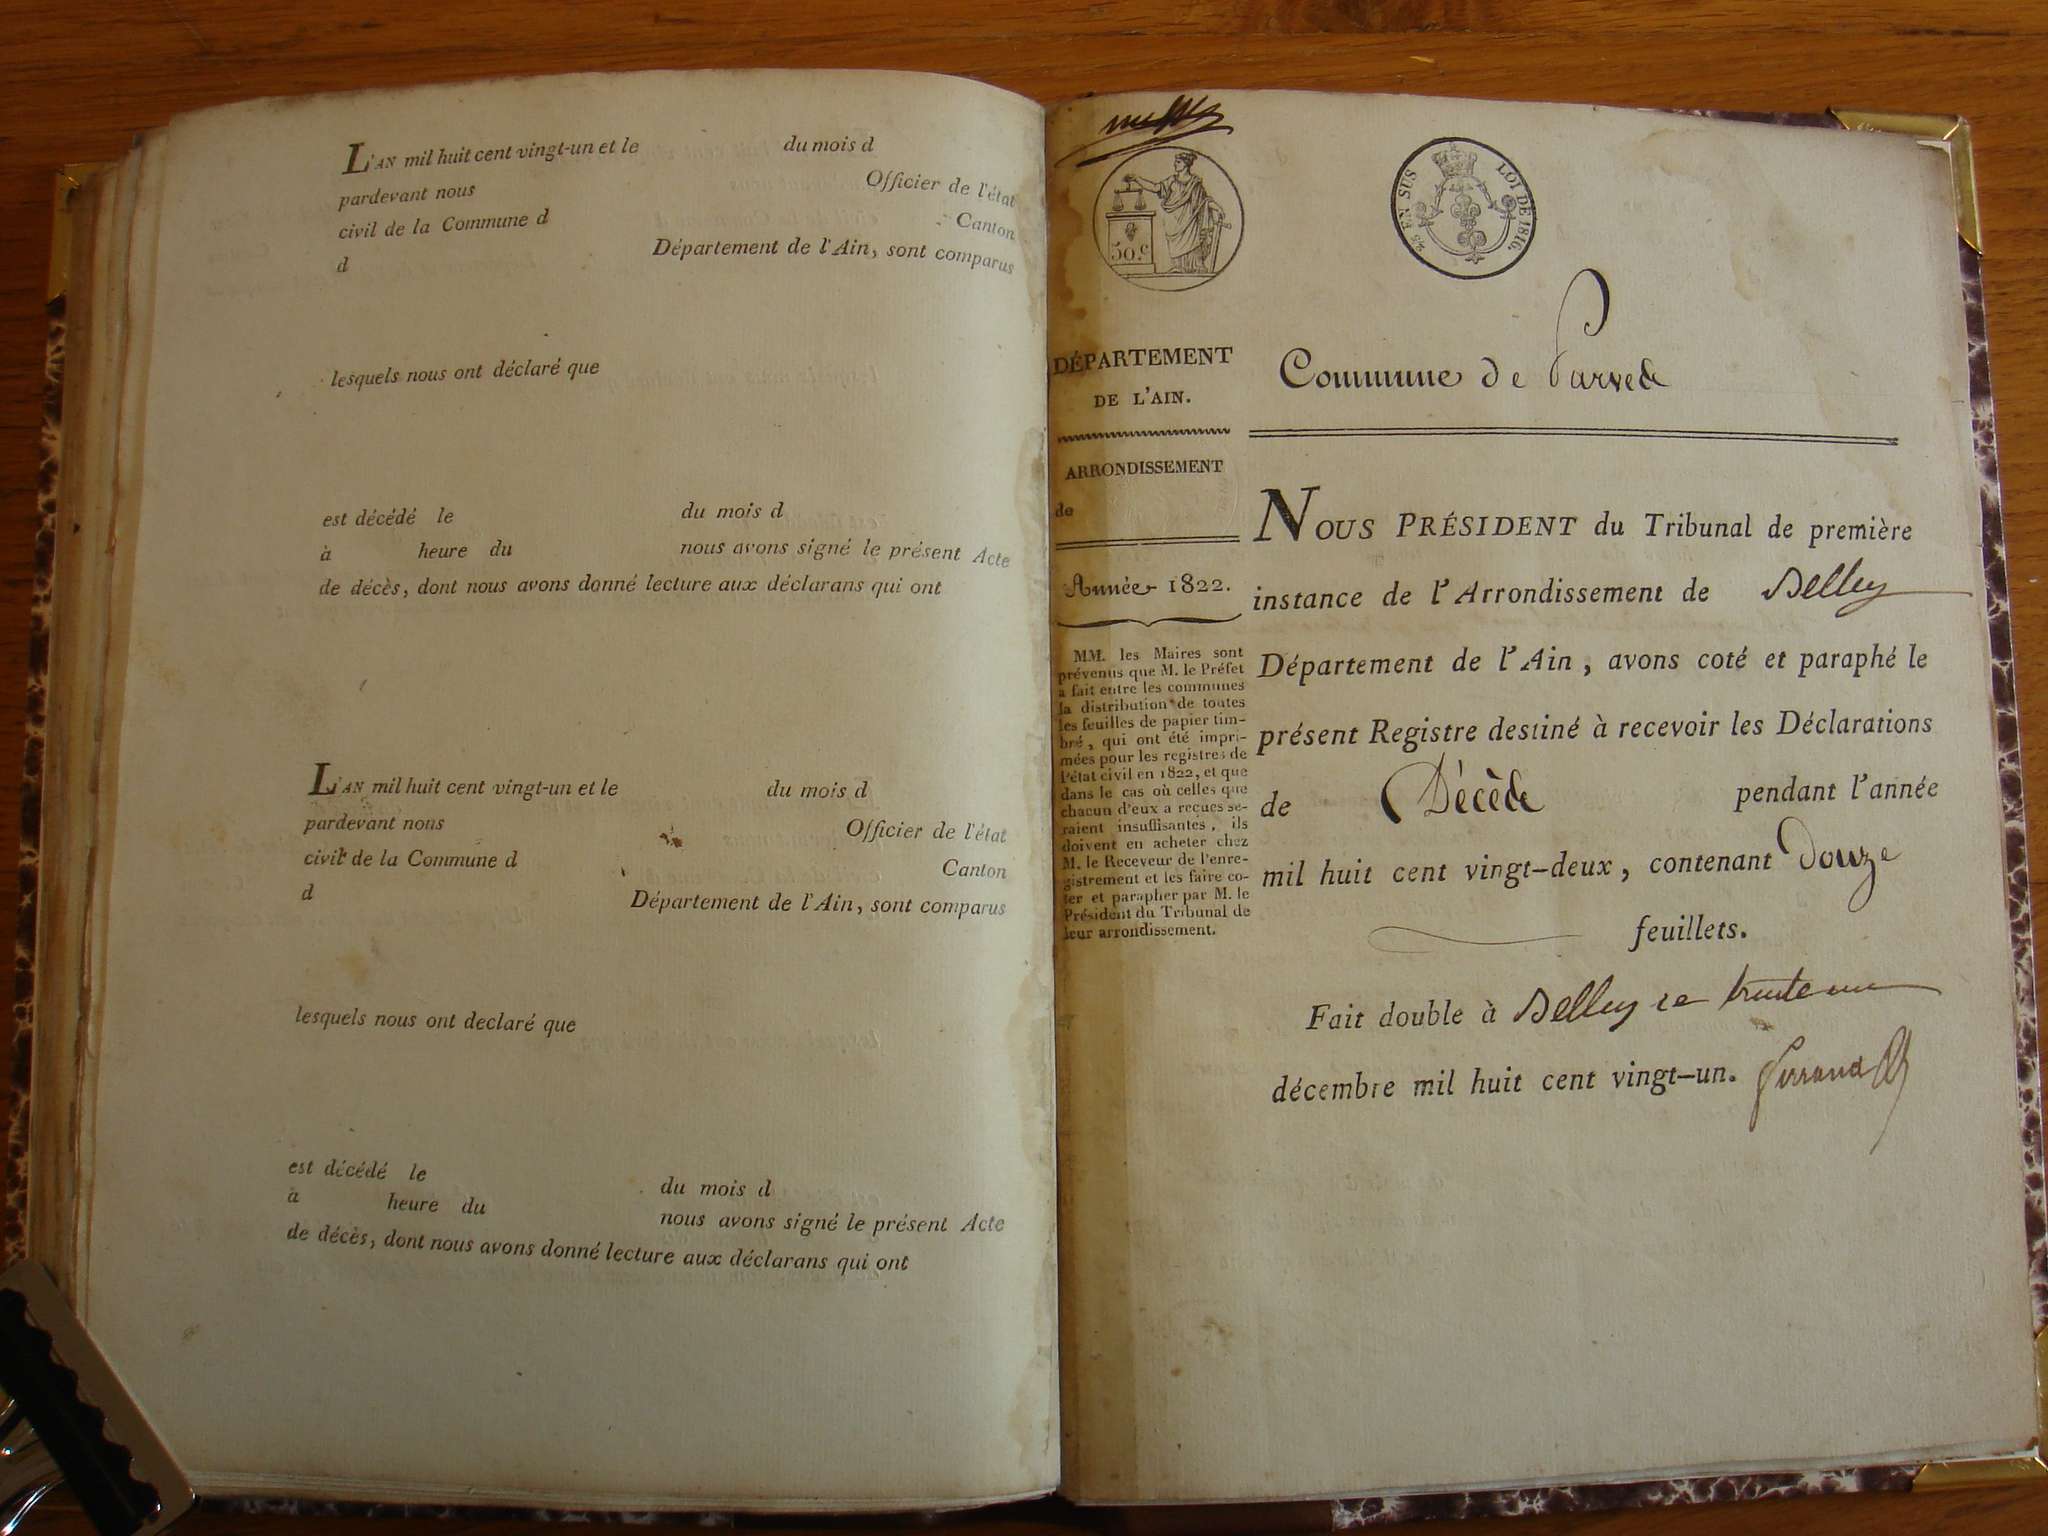 L'AN mil huit cent vingt-un et le du mois d
pardevant nous Officier de l'état
civil de la Commune d Canton
d Département de l'Ain, sont comparus
lesquels nous ont déclaré que
est décédé le du mois d
à heure du nous avons signé le présent Acte
de décès, dont nous avons donné lecture aux déclarans qui ont
L'AN mil huit cent vingt-un et le du mois d
pardevant nous Officier de l'état
civil de la Commune d Canton
d Département de l'Ain, sont comparus
lesquels nous ont declaré que
est décédé le du mois d
à heure du nous avons signé le présent Acte
de décès, dont nous avons donné lecture aux déclarans qui ont
50.c
EN SUS LOI DE 1816.
DÉPARTEMENT
DE L'AIN.
ARRONDISSEMENT
de
Année 1822.
MM. les Maires sont
prévenus que M. le Préfet
a fait entre les communes
la distribution de toutes
les feuilles de papier tim-
bré, qui ont été impri-
mées pour les registres de
l'état civil en 1822, et que
dans le cas où celles que
chacun d'eux a reçues se-
raient insuffisantes, ils
doivent en acheter chez
M. le Receveur de l'enre-
gistrement et les faire co-
ter et parapher par M. le
Président du Tribunal de
leur arrondissement.
Commune de
NOUS PRÉSIDENT du Tribunal de première
instance de l'Arrondissement de Belley
Département de l'Ain, avons coté et paraphé le
présent Registre destiné à recevoir les Déclarations
de Décès pendant l'année
mil huit cent vingt-deux, contenant Douze
feuillets.
Fait double à Belley ce trente un
décembre mil huit cent vingt-un.